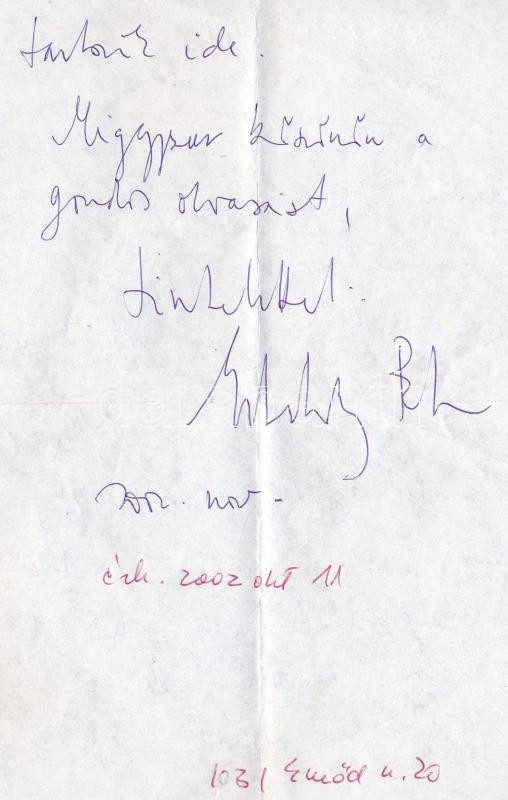 tartozik ide.
Mégegyszer köszönöm a
gondos olvasást,
tisztelettel:
Esterházy Péter
2002. nov -
érk. 2002 okt 11
1031 Emőd u. 20